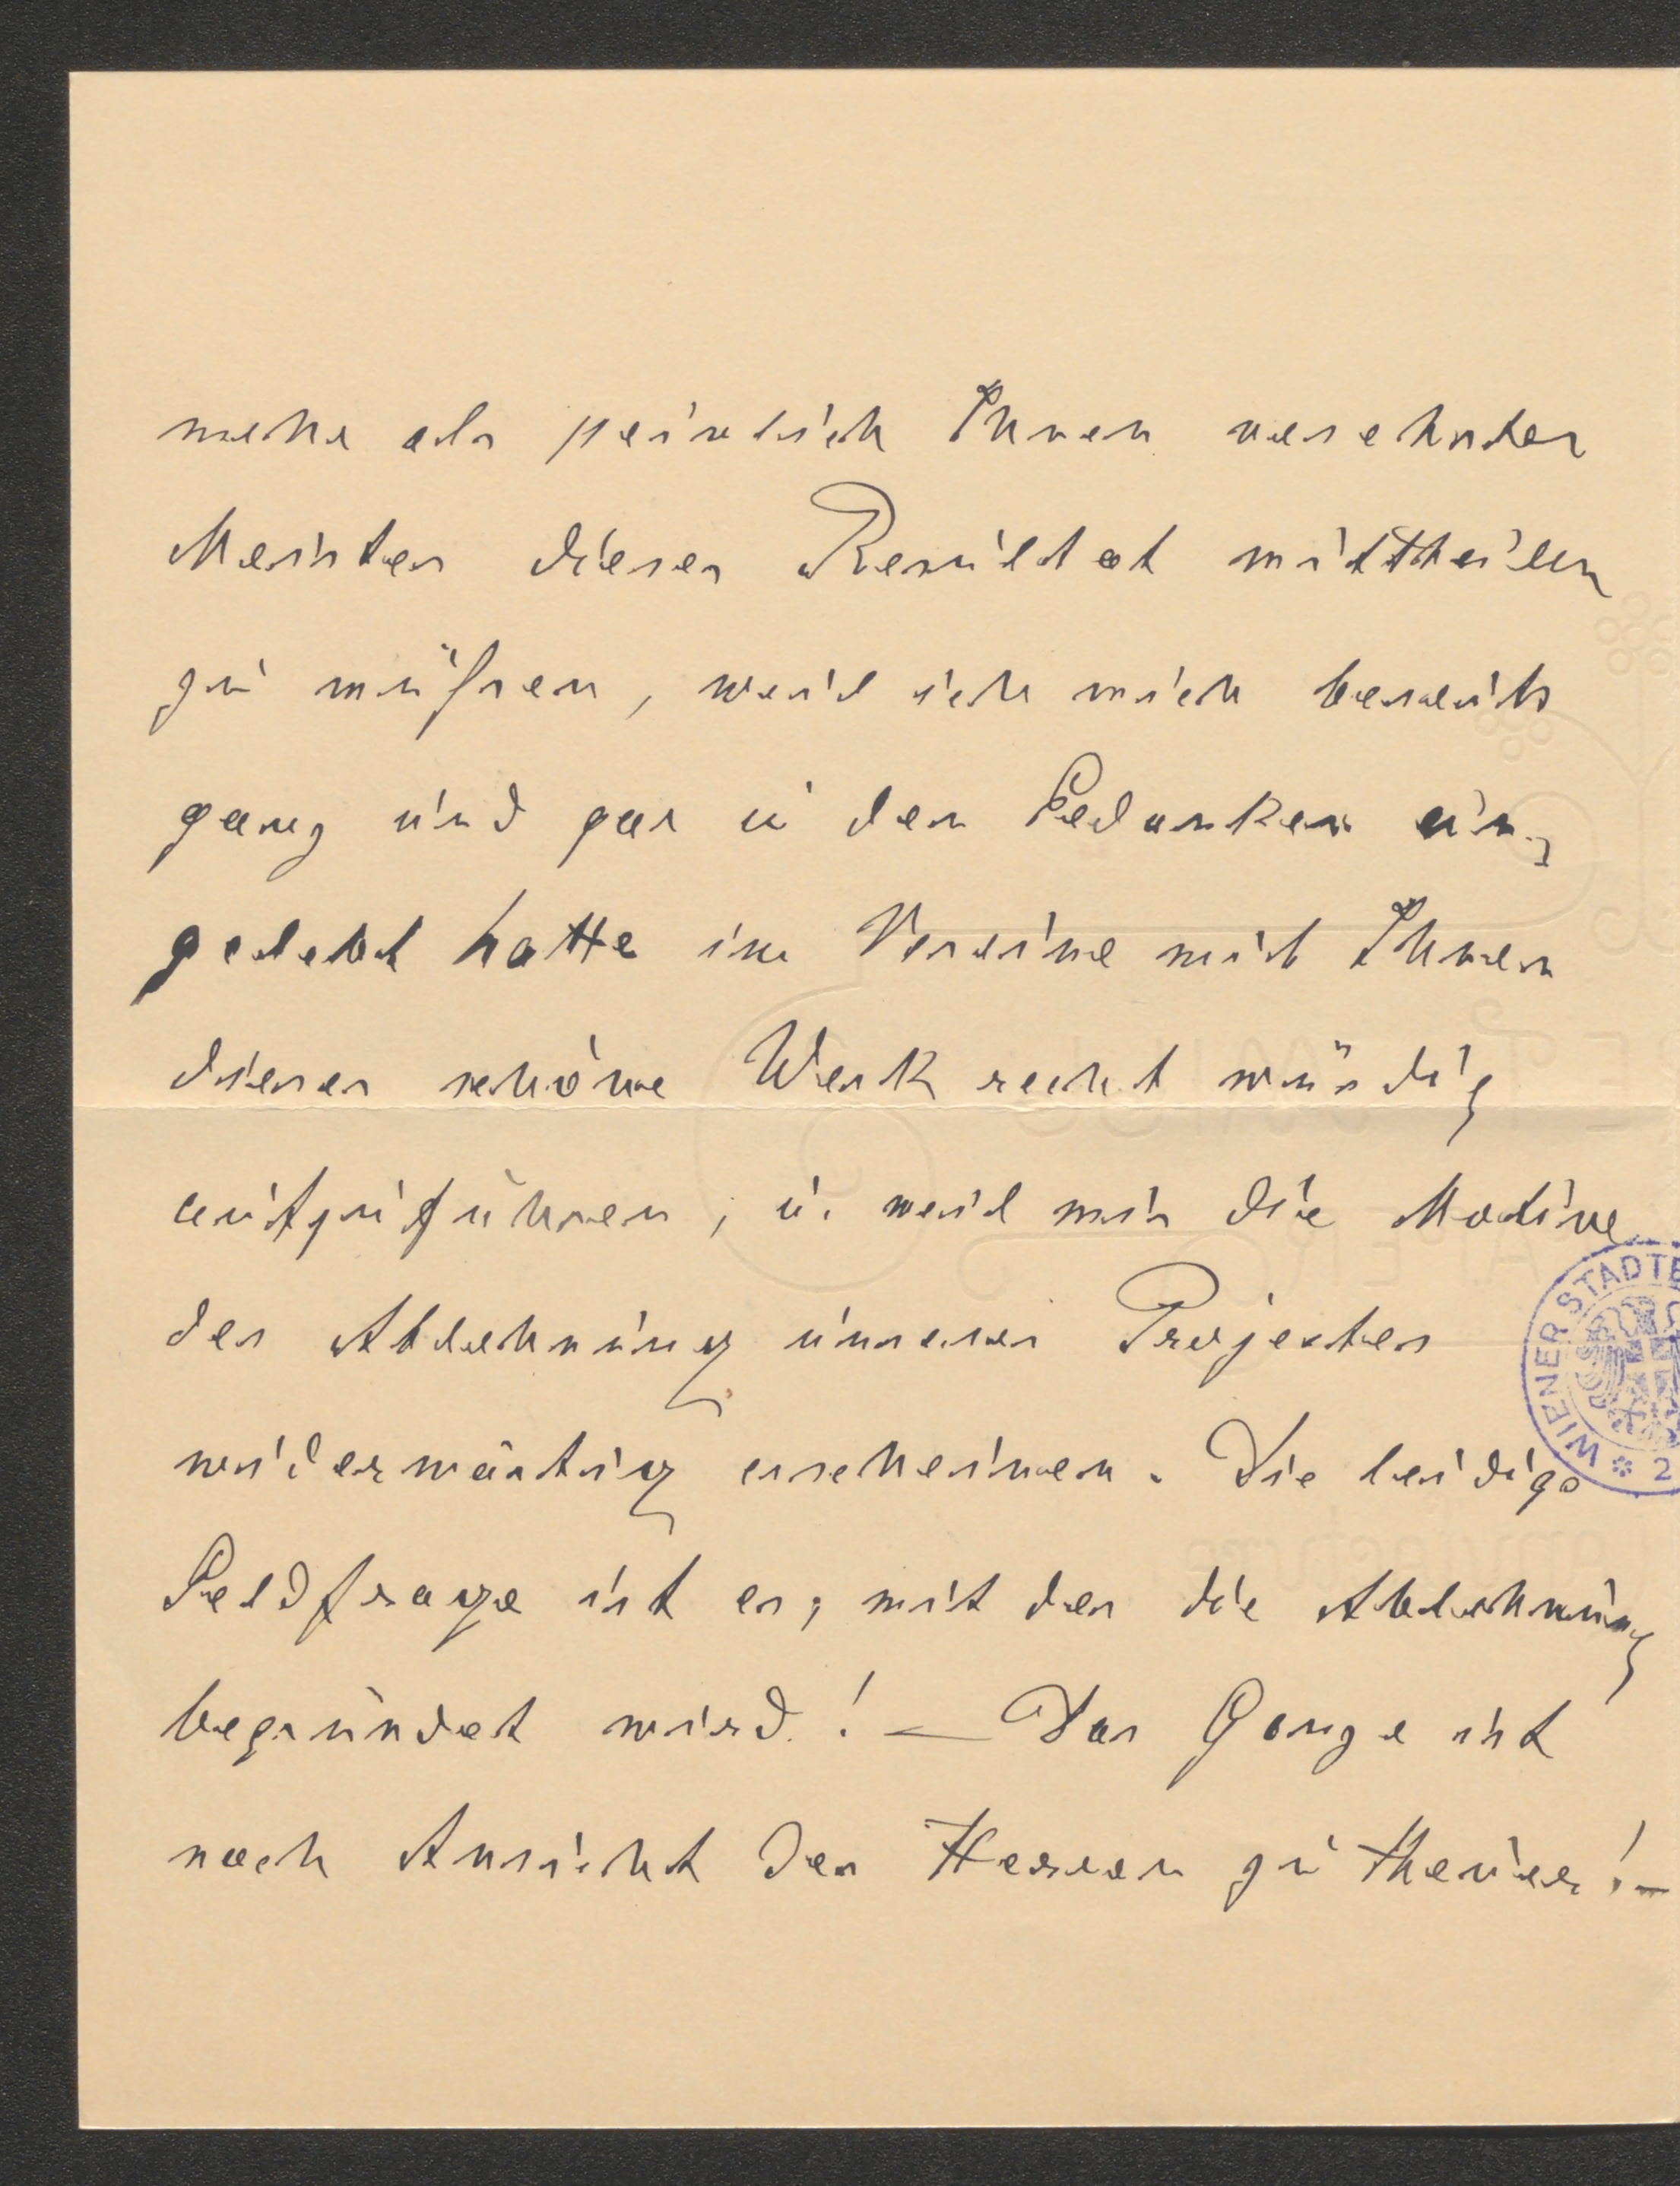 mehr als peinlich Ihnen verehrter
Meister dieses Resultat mittheilen
zu müßen, weil ich mich bereits
ganz und gar in den Gedanken ein-
gelebt hatte im Vereine mit Ihnen
dieses schöne Werk recht würdig
aufzuführen, u. weil mir die Motive
der Ablehnung unseres Projectes
widerwärtig erscheinen. Die leidige
Geldfrage ist es, mit der die Ablehnung
begründet wird! — Das Ganze ist
nach Ansicht der Herren zu theuer! —
WIENER STADT
2